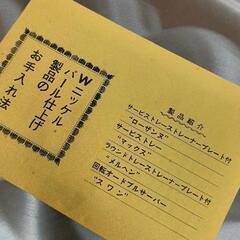 Wニッケル
パール仕上げ
製品の
お手入れ法
製品紹介
サービストレーストレーナープレート付
"ローザンヌ"
サービストレー
"マックス"
ラウンドトレーストレーナープレート付
"メルヘン"
回転オードブルサーバー
"スワン"